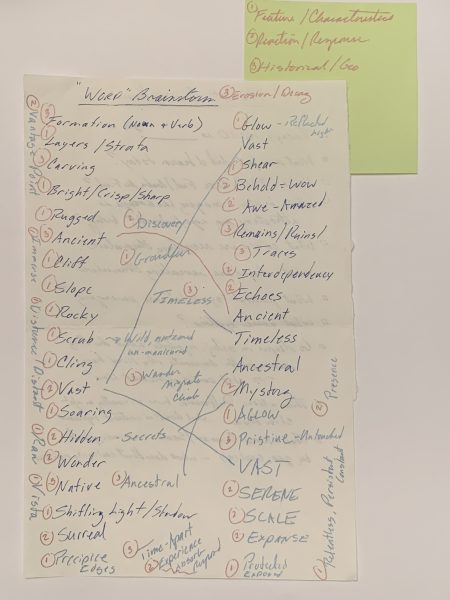 ① Feature / Characteristics
② Reaction / Response
③ Historical / Geo
"WORD" Brainstorm
③ Erosion / Dying
② Vantage Point
① Immense
① Distance Distant
① Raw
① Vista
③ Formation (Noun + Verb)
① Layers / Strata
③ Carving
① Bright / Crisp / Sharp
① Rugged
③ Ancient
① Cliff
① Slope
① Rocky
① Scrub - Wild, untamed
un-manicured
① Cling
② Vast
① Soaring
② Hidden - Secrets
② Wonder
③ Native
① Shifting Light / Shadow
② Surreal
① Precipice
Edges
② Discovery
① Grandeur
③ TIMELESS
③ Wander
migrate
③ Ancestral
③ Time-Apart
② Experience
absorb
① Glow - Reflected
light
Vast
① Shear
② Behold = Wow
② Awe - Amazed
③ Remains / Ruins /
③ Traces
② Interdependency
② Echoes
Ancient
Timeless
Ancestral
② Mystery
① AGLOW
③ Pristine - Untouched
VAST
② SERENE
② SCALE
② EXPANSE
① Protected
Exposed
② Presence
① Relentless, Persistent
Constant